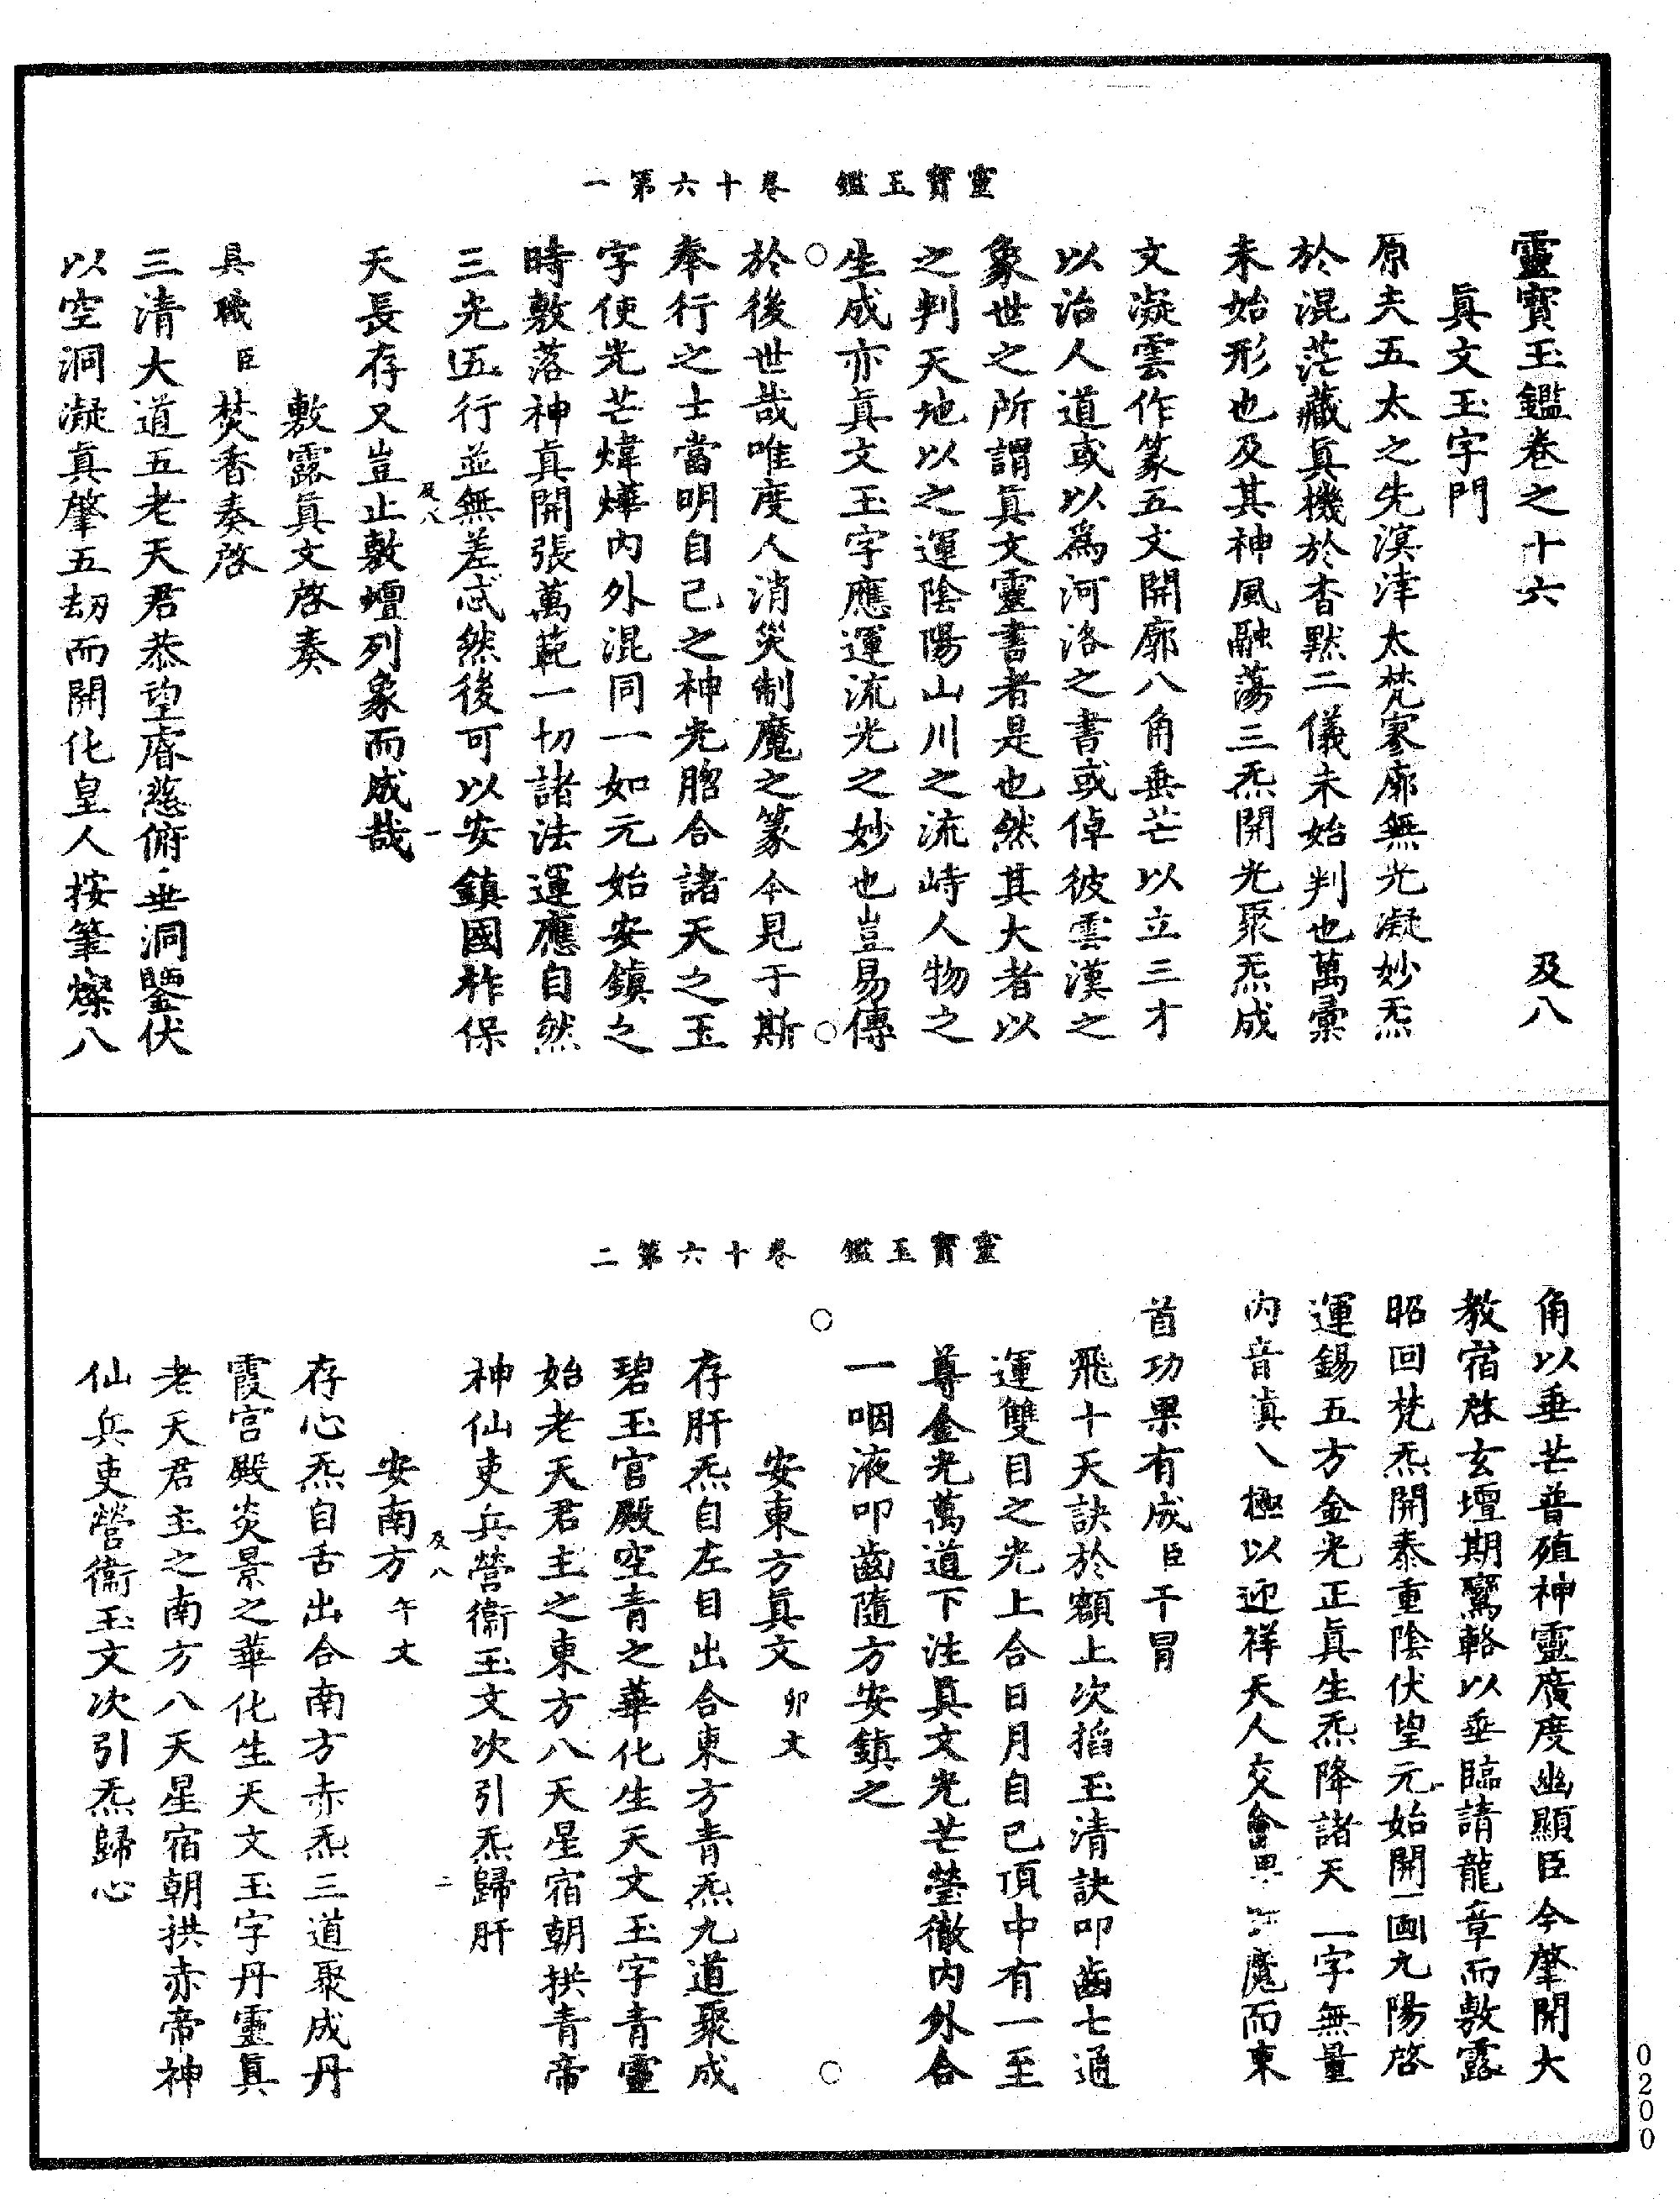 靈寶玉鑑　卷十六第一
靈寶玉鑑卷之十六　及八
眞文玉字門
原夫五太之先溟涬太梵寥廓無光凝妙炁
於混茫藏眞機於杳默二儀未始判也萬彙
未始形也及其神風融蕩三炁開光聚炁成
文凝雲作篆五文開廓八角垂芒以立三才
以治人道或以爲河洛之書或倬彼雲漢之
象世之所謂眞文靈書者是也然其大者以
之判天地以之運陰陽山川之流峙人物之
生成亦眞文玉字應運流光之妙也豈易傳
於後世哉唯度人消災制魔之篆今見于斯
奉行之士當明自己之神光脗合諸天之玉
字使光芒煒燁內外混同一如元始安鎮之
時敷落神眞開張萬範一切諸法運應自然
三光五行並無差忒然後可以安鎮國祚保
及八　一
天長存又豈止敷壇列象而成哉
敷露眞文啓奏
具職臣焚香奏啓
三清大道五老天君恭望睿慈俯垂洞鑒伏
以空洞凝眞肇五劫而開化皇人按筆燦八
靈寶玉鑑　卷十六第二
角以垂芒普殖神靈廣度幽顯臣今肇開大
教宿啓玄壇期鸞輅以垂臨請龍章而敷露
昭回梵炁開泰重陰伏望元始開圖九陽啓
運錫五方金光正眞生炁降諸天一字無量
內音滇八極以迎祥天人交會魔而東
首功果有成臣干冒
飛十天訣於額上次掐玉清訣叩齒七通
運雙目之光上合日月自己頂中有一至
尊金光萬道下注眞文光芒瑩徹內外合
一咽液叩齒隨方安鎮之
安東方眞文卯文
存肝炁自左目出合東方青炁九道聚成
碧玉宮殿空青之華化生天文玉字青靈
始老天君主之東方八天星宿朝拱青帝
神仙吏兵營衞玉文次引炁歸肝
及八　二
安南方午文
存心炁自舌出合南方赤炁三道聚成丹
霞宮殿炎景之華化生天文玉字丹靈眞
老天君主之南方八天星宿朝拱赤帝神
仙兵吏營衞玉文次引炁歸心
0200